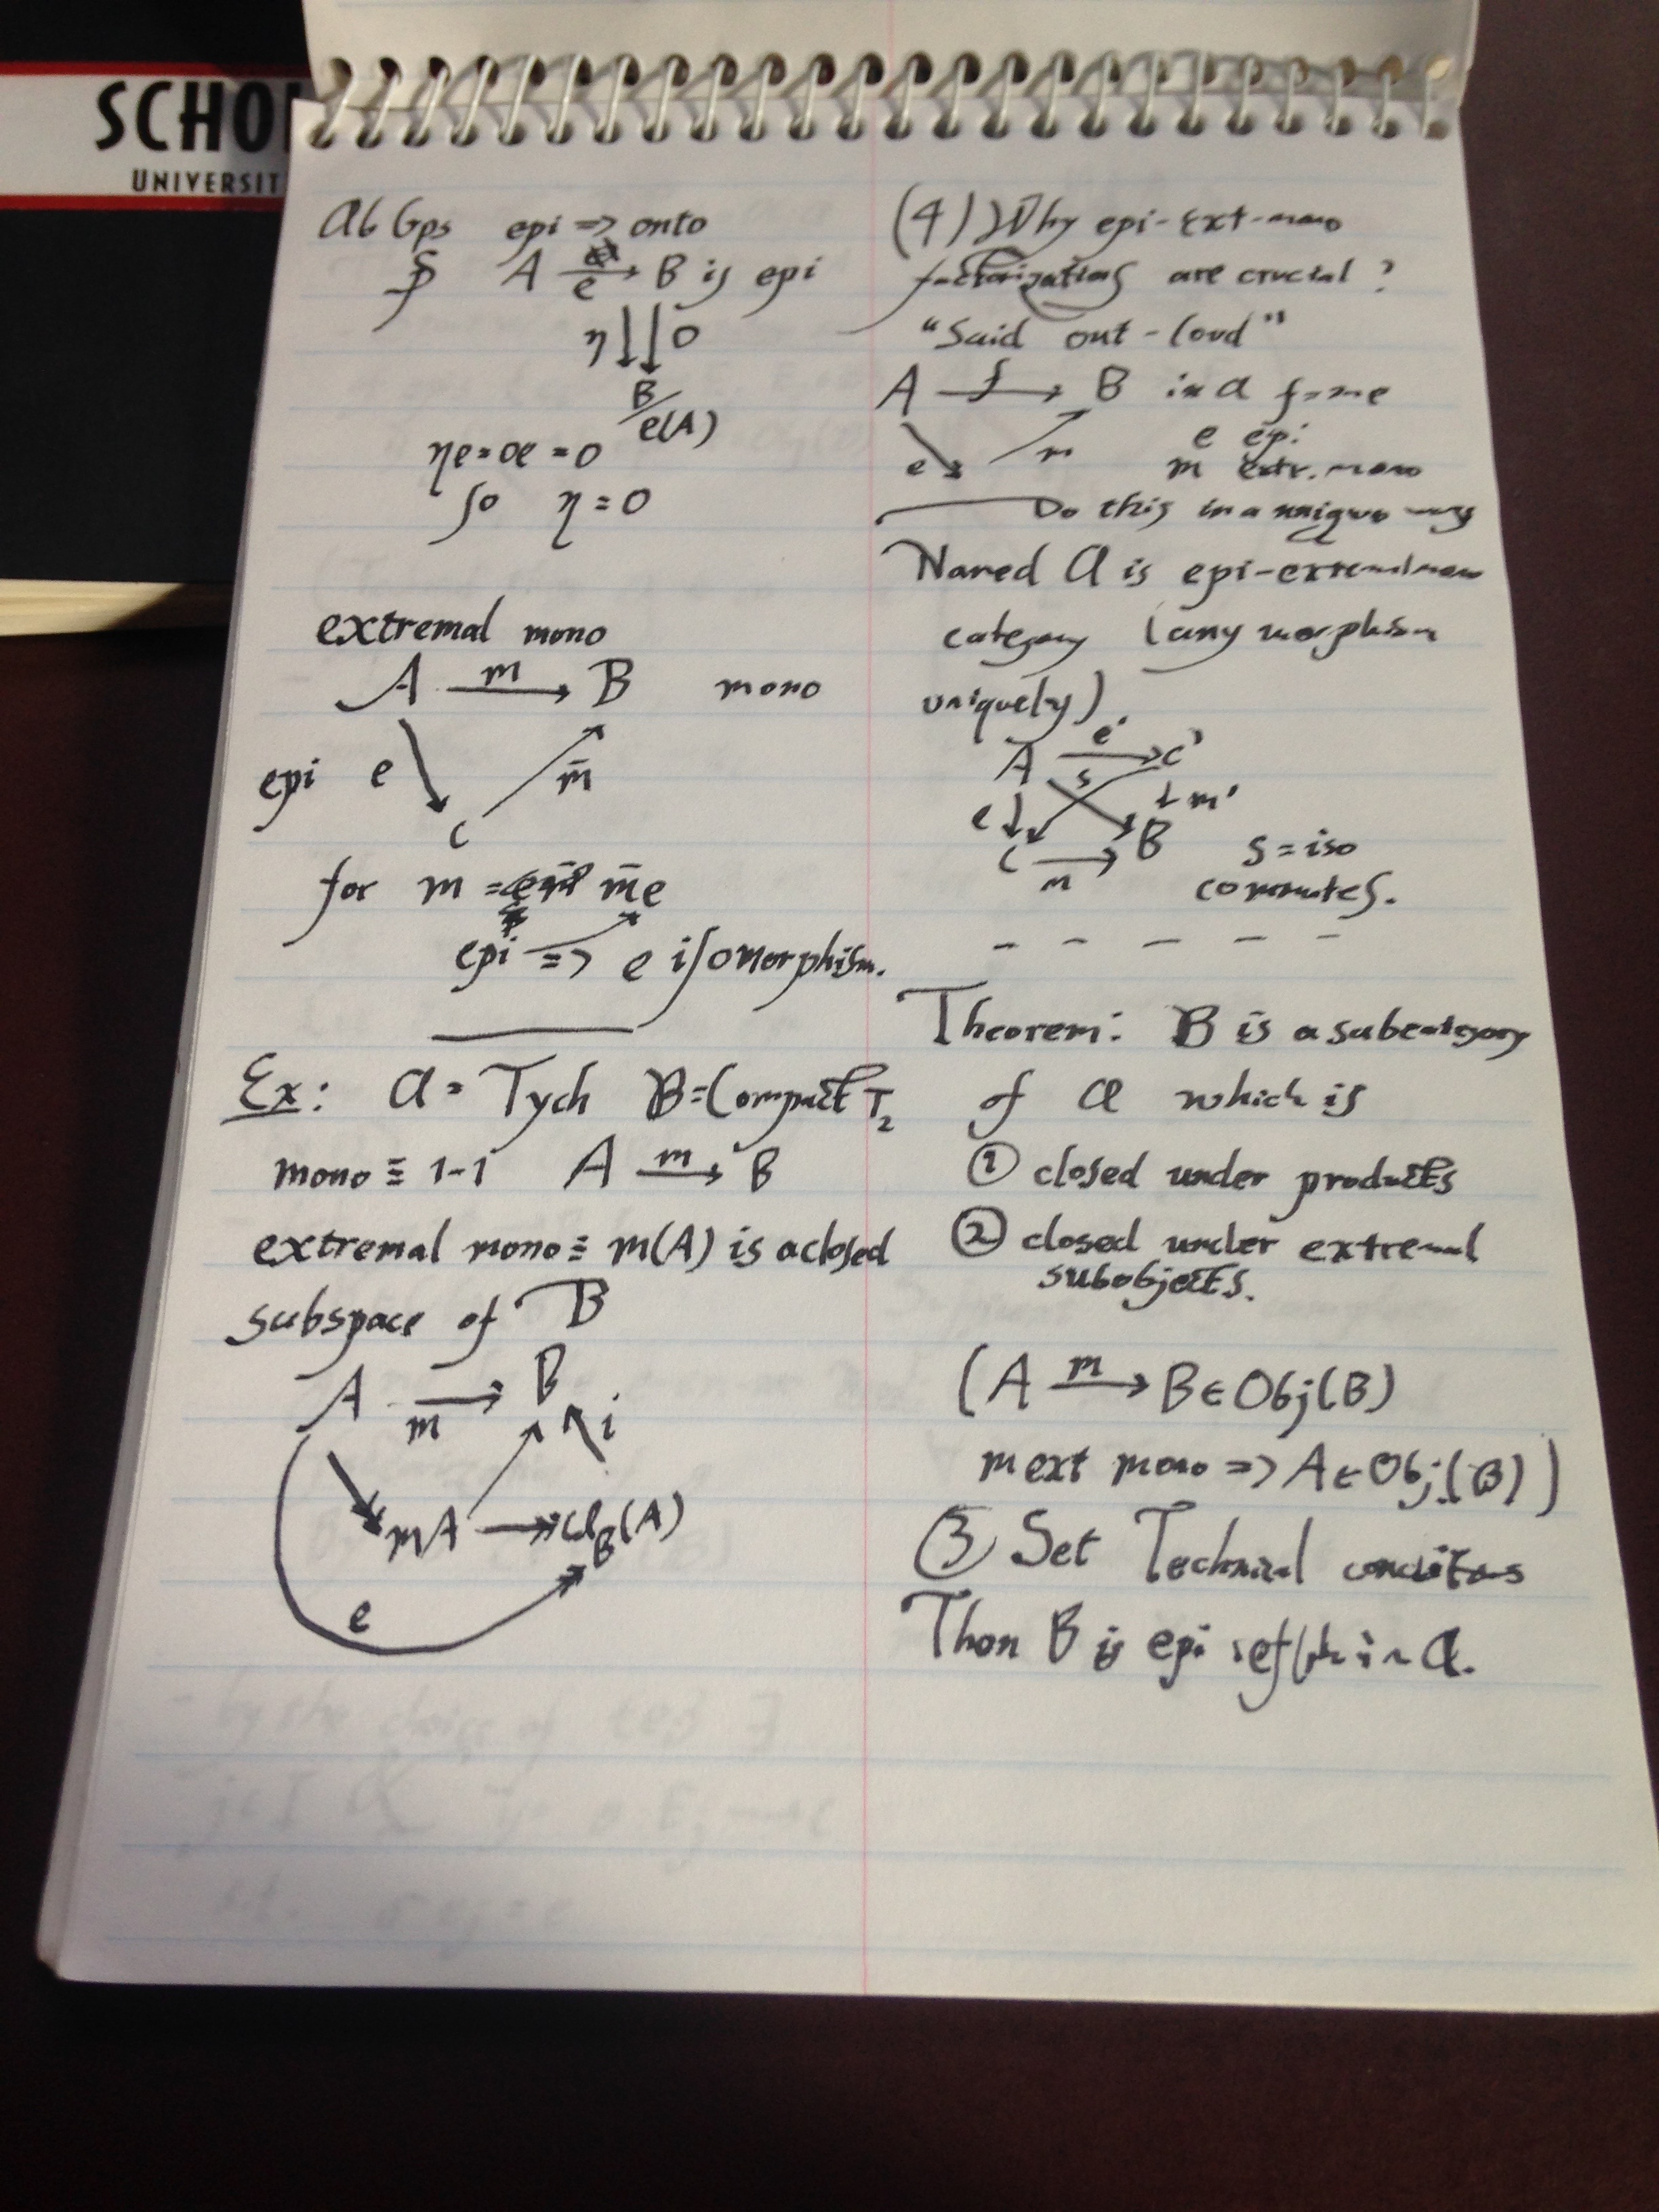 SCHO
UNIVERSIT
Ab Gps epi => onto
A e B is epi
η 0
B/e(A)
ηe=0e=0
so η=0
extremal mono
A m B mono
epi e m̄
C
for m = m̄e
epi => e isomorphism.
Ex: A = Tych B = Compact T₂
mono ≡ 1-1 A m B
extremal mono ≡ m(A) is a closed
subspace of B
A m B
i
mA cl_B(A)
e
(4) Why epi-Ext-mono
factorizations are crucial?
"Said out-loud"
A f B in A f=me
e m e epi
m extr. mono
Do this in a unique way
Named A is epi-extremal mono
category (any morphism
uniquely).
A e' C'
s
e m'
C m B s=iso
commutes.
Theorem: B is a subcategory
of A which is
① closed under products
② closed under extremal
subobjects.
(A m B ∈ Obj(B)
m ext mono => A ∈ Obj(B))
③ Set Technical conditions
Then B is epi in A.